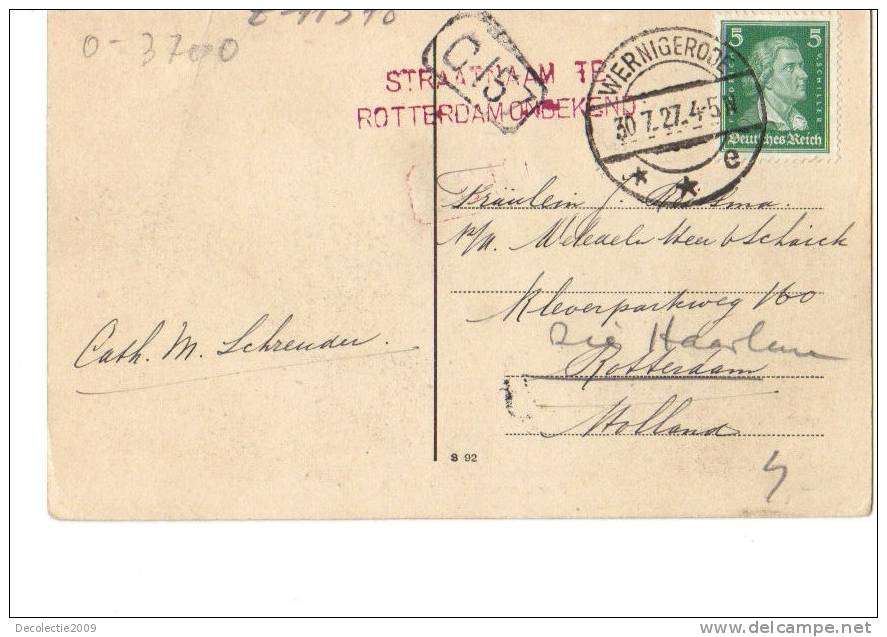 0-3700
C 157
STRAATNAAM TE
ROTTERDAM ONBEKEND
WERNIGERODE
30.7.27.4-5N
e
5 5
V. SCHILLER
Deutsches Reich
Fräulein J.
p/a.
Kleverparkweg 160
Zie Haarlem
Rotterdam
Holland
Cath. M. Schreuder.
S 92
Decolectie2009
www.delcampe.net